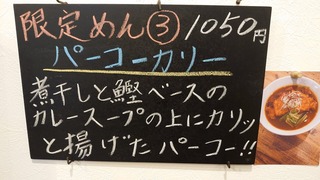 限定めん③ 1050円
パーコーカリー
煮干しと鰹ベースの
カレースープの上にカリッ
と揚げたパーコー!!